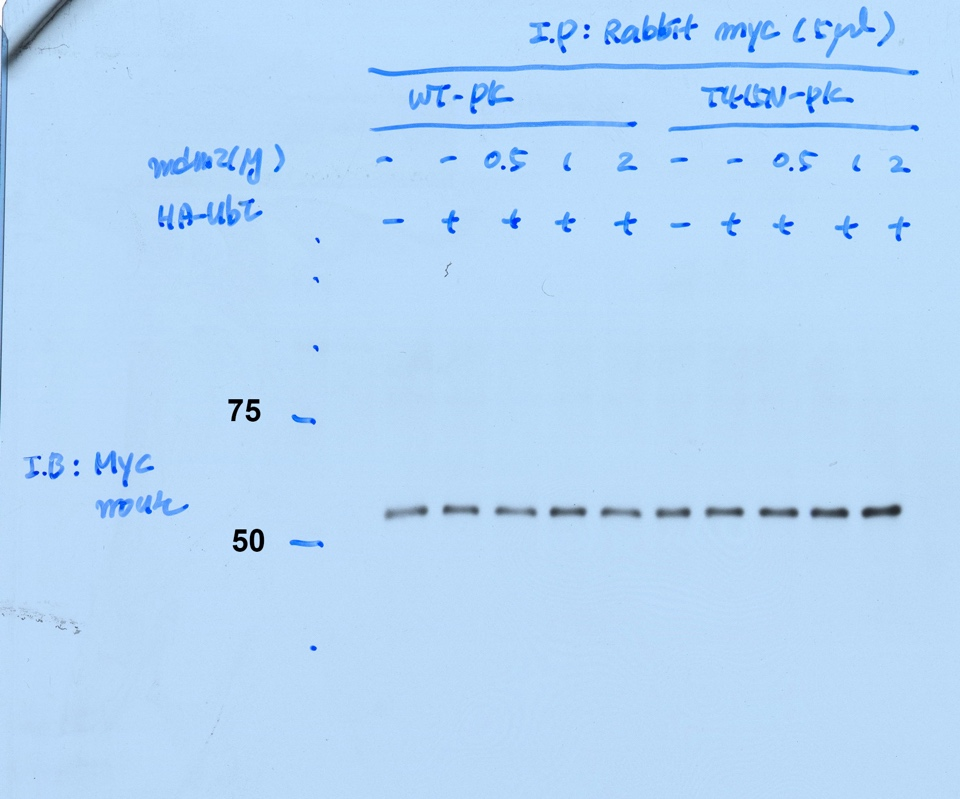 I.P: Rabbit myc (5 µl)
WT-PK
mdm2(µg) - - 0.5 1 2 - - 0.5 1 2
HA-Ub - + + + + - + + + +
75
I.B: Myc
mouse
50